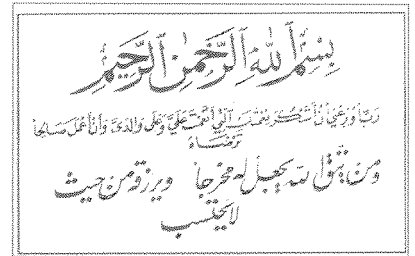 بسم الله الرحمن الرحيم
رب أوزعني أن أشكر نعمتك التي أنعمت علي وعلى والدي وأن أعمل صالحا
ترضاه
ومن يتق الله يجعل له مخرجا ويرزقه من حيث
لا يحتسب